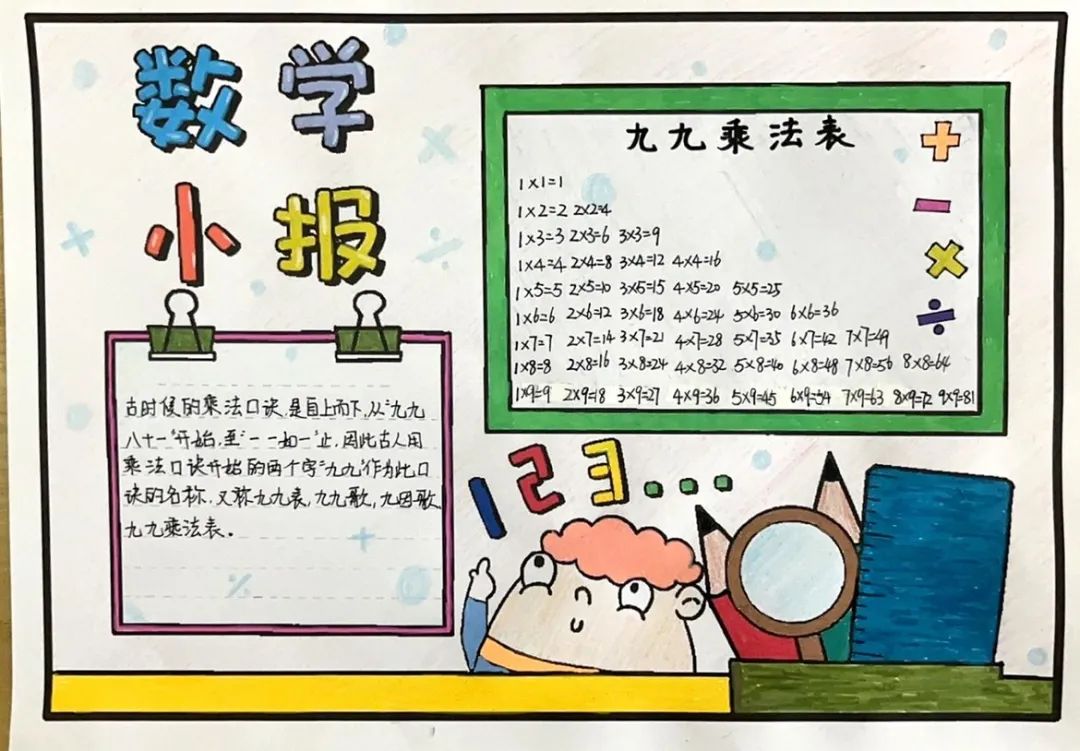 数学
小报
九九乘法表
1×1=1
1×2=2 2×2=4
1×3=3 2×3=6 3×3=9
1×4=4 2×4=8 3×4=12 4×4=16
1×5=5 2×5=10 3×5=15 4×5=20 5×5=25
1×6=6 2×6=12 3×6=18 4×6=24 5×6=30 6×6=36
1×7=7 2×7=14 3×7=21 4×7=28 5×7=35 6×7=42 7×7=49
1×8=8 2×8=16 3×8=24 4×8=32 5×8=40 6×8=48 7×8=56 8×8=64
1×9=9 2×9=18 3×9=27 4×9=36 5×9=45 6×9=54 7×9=63 8×9=72 9×9=81
+
-
×
÷
古时候的乘法口诀,是自上而下,从“九九
八十一”开始,至“一一如一”止,因此古人用
乘法口诀开始的两个字“九九”作为此口
诀的名称,又称九九表,九九歌,九因歌,
九九乘法表。
1 2 3 ...